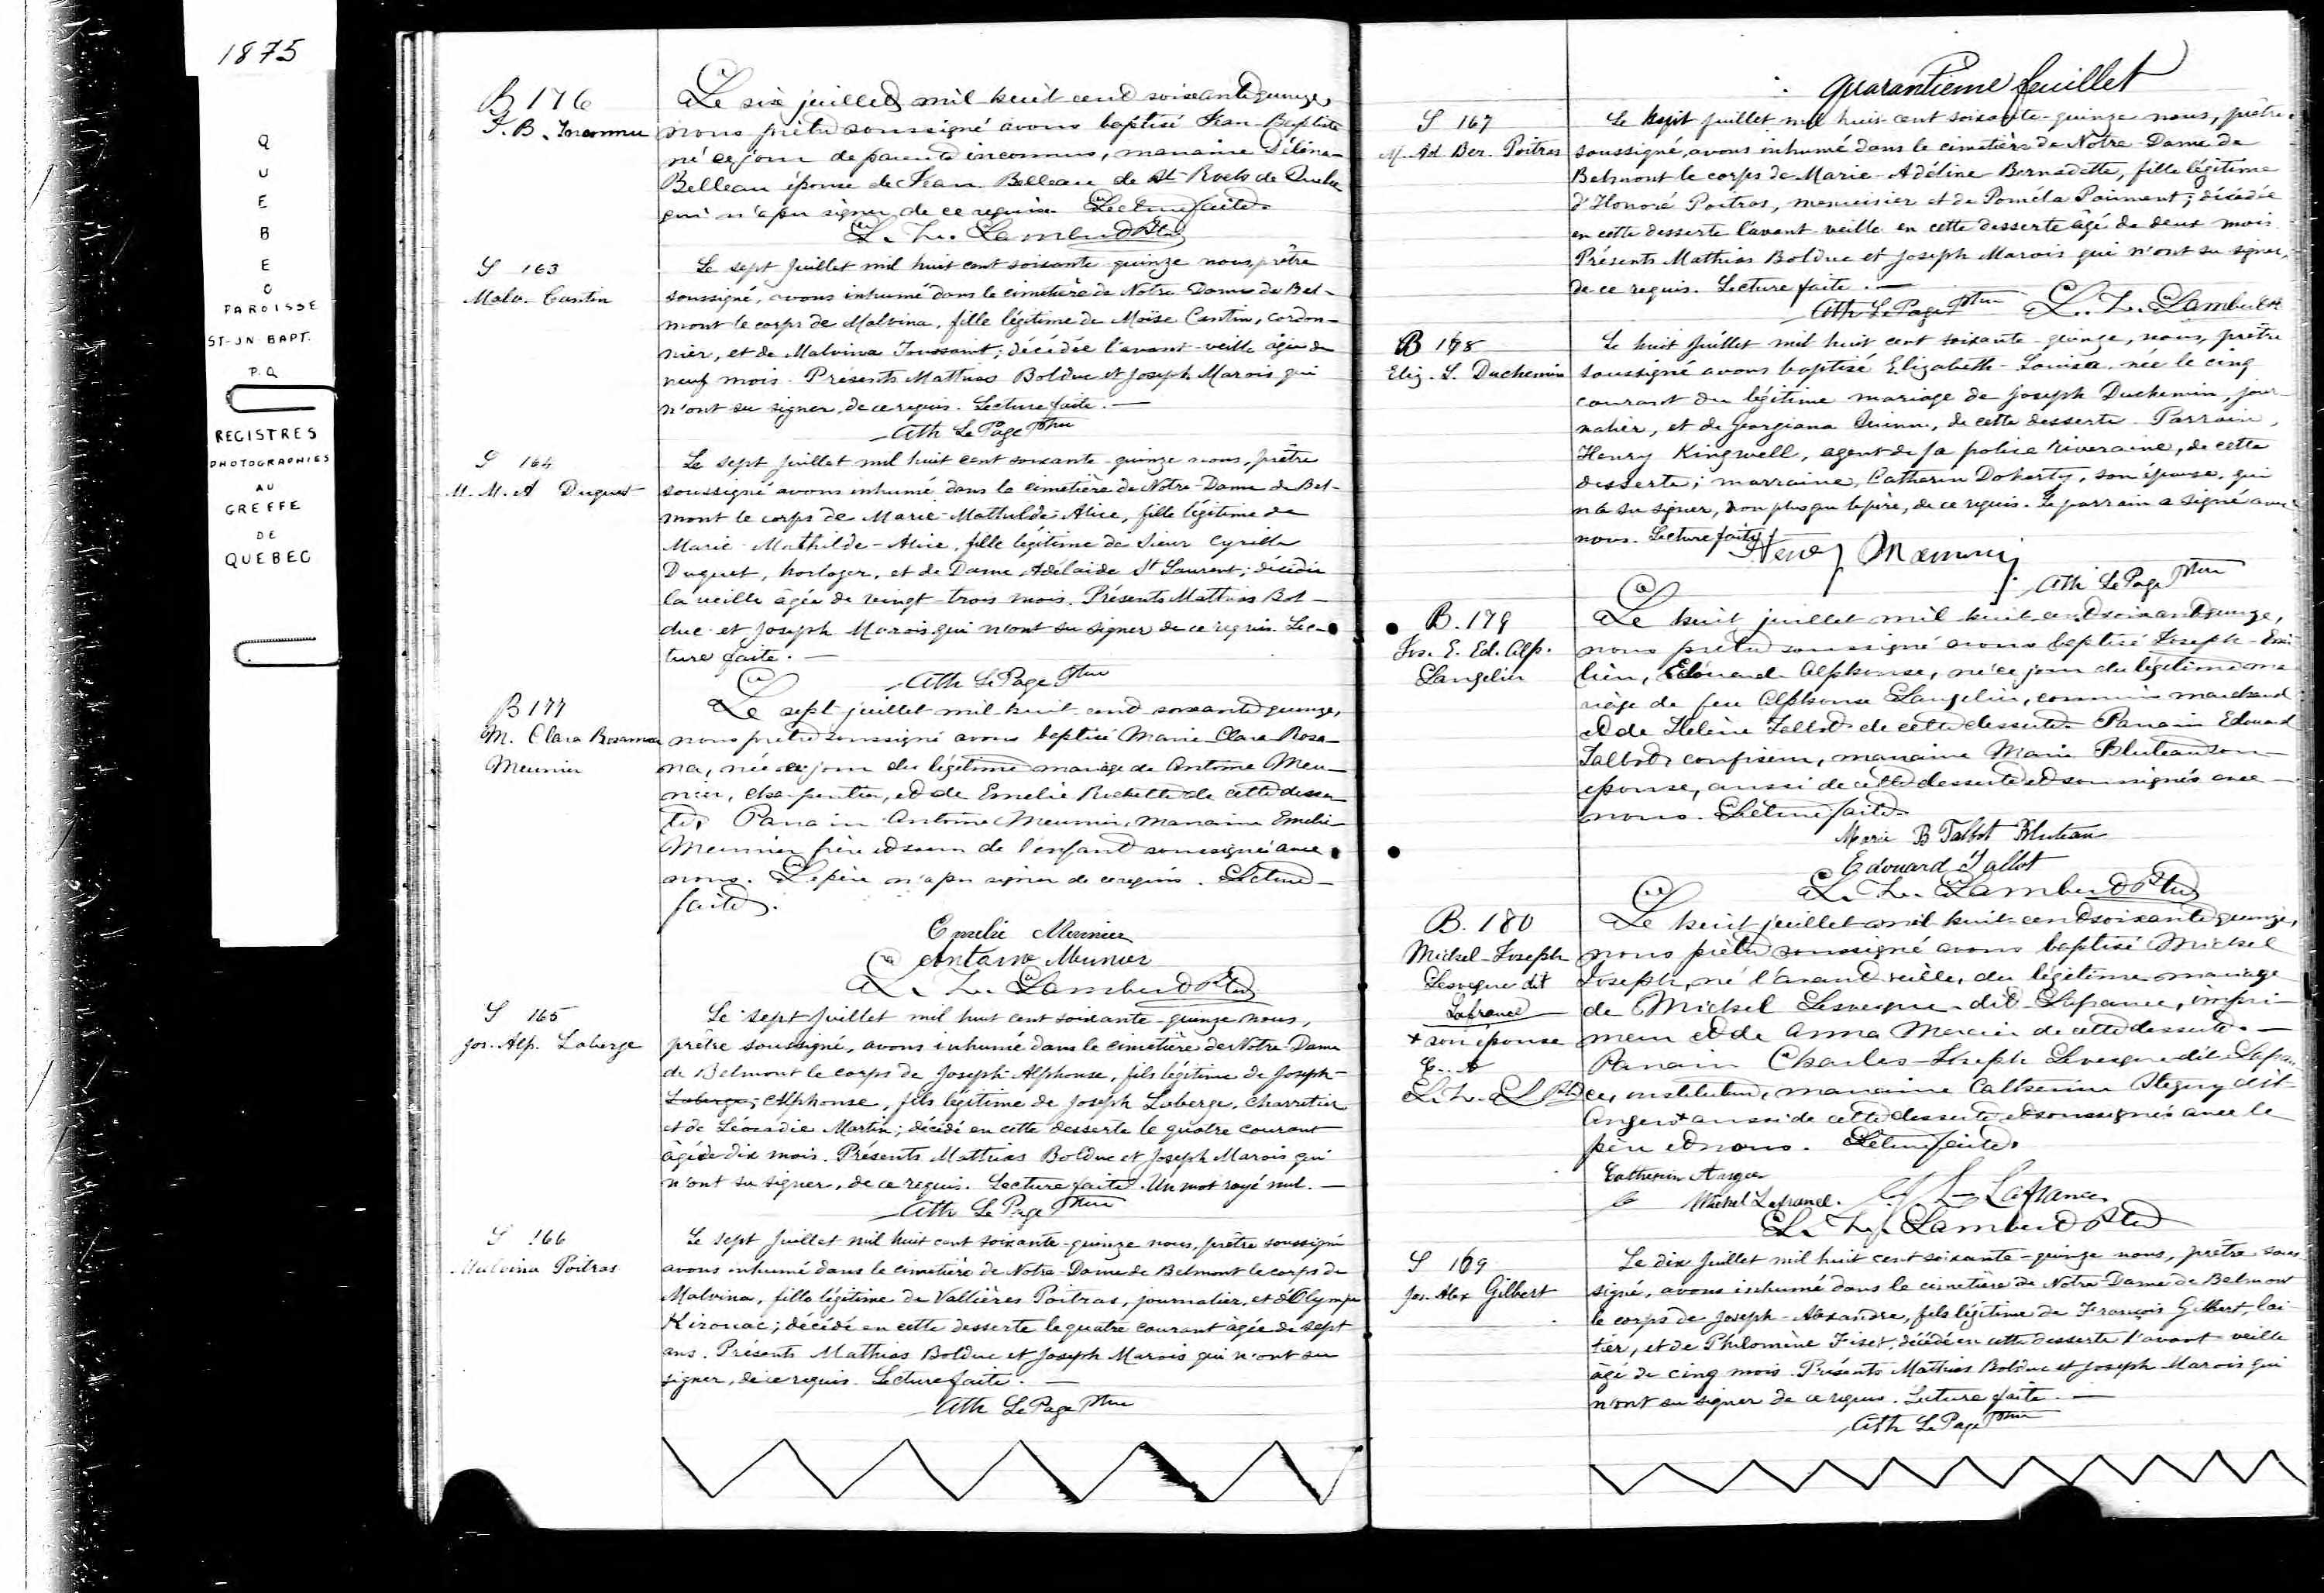 1875
QUEBEC
PAROISSE
ST-JN-BAPT.
P.Q
REGISTRES
PHOTOGRAPHIES
AU
GREFFE
DE
QUEBEC
B 176
J. B. Inconnu
Le six juillet mil huit cent soixante quinze,
nous prêtre soussigné avons baptisé Jean-Baptiste
né ce jour de parents inconnus, marraine Délina
Belleau épouse de Jean Belleau de St-Roch de Québec
qui n'a pu signer de ce requis. Lecture faite.
L. H. Lambert Ptre
S 163
Malv. Cantin
Le sept Juillet mil huit cent soixante quinze nous, prêtre
soussigné, avons inhumé dans le cimetière de Notre-Dame de Bel-
mont le corps de Malvina, fille légitime de Moïse Cantin, cordon-
nier, et de Malvina Toussaint; décédée l'avant-veille âgée de
neuf mois. Présents Mathias Bolduc et Joseph Marois qui
n'ont su signer, de ce requis. Lecture faite. —
Ath LePage Ptre
S 164
M. M. A Duquet
Le sept Juillet mil huit cent soixante-quinze nous, prêtre
soussigné avons inhumé dans le cimetière de Notre-Dame de Bel-
mont le corps de Marie-Mathilde-Alice, fille légitime de
Marie-Mathilde-Alice, fille légitime de Sieur Cyrille
Duquet, horloger, et de Dame Adélaide St Laurent; décédée
la veille âgée de vingt-trois mois. Présents Mathias Bol-
duc et Joseph Marois qui n'ont su signer de ce requis. Lec-
ture faite. —
Ath LePage Ptre
B 177
M. Clara Rosanna
Meunier
Le sept juillet mil huit cent soixante quinze,
nous prêtre soussigné avons baptisé Marie-Clara Rosa-
na, née ce jour du légitime mariage de Antoine Meu-
nier, charpentier, et de Emelie Rickette de cette desser-
te. Parrain Antoine Meunier, marraine Emelie
Meunier frère et soeur de l'enfant soussignés avec
nous. Le père n'a pu signer de ce requis. Lecture
faite.
Emelie Meunier
Antoine Meunier
L. H. Lambert Ptre
S 165
Jos. Alp. Laberge
Le sept Juillet mil huit cent soixante-quinze nous,
prêtre soussigné, avons inhumé dans le cimetière de Notre-Dame
de Belmont le corps de Joseph-Alphonse, fils légitime de Joseph-
Laberge, Alphonse, fils légitime de Joseph Laberge, charretier
et de Léocadie Martin; décédé en cette desserte le quatre courant
âgé de dix mois. Présents Mathias Bolduc et Joseph Marois qui
n'ont su signer, de ce requis. Lecture faite. Un mot rayé nul. —
Ath LePage Ptre
S 166
Malvina Poitras
Le sept Juillet mil huit cent soixante-quinze nous, prêtre soussigné
avons inhumé dans le cimetière de Notre-Dame de Belmont le corps de
Malvina, fille légitime de Vallières Poitras, journalier, et d'Olympe
Kirouac; décédé en cette desserte le quatre courant âgée de sept
ans. Présents Mathias Bolduc et Joseph Marois qui n'ont su
signer, de ce requis. Lecture faite. —
Ath LePage Ptre
quarantième feuillet
S 167
M. Ad. Ber. Poitras
Le huit juillet mil huit cent soixante-quinze nous, prêtre
soussigné, avons inhumé dans le cimetière de Notre-Dame de
Belmont le corps de Marie-Adéline Bernadette, fille légitime
d'Honoré Poitras, menuisier et de Poméla Paiment; décédée
en cette desserte l'avant-veille en cette desserte âgé de deux mois
Présents Mathias Bolduc et Joseph Marois qui n'ont su signer,
de ce requis. Lecture faite. —
Ath LePage Ptre L. H. Lambert
B 178
Eliz. L. Duchemin
Le huit Juillet mil huit cent soixante-quinze, nous, prêtre
soussigné avons baptisé Elizabeth-Louisa née le cinq
courant du légitime mariage de Joseph Duchemin, jour-
nalier, et de Georgiana Quinn, de cette desserte Parrain,
Henry Kingwell, agent de la police riveraine, de cette
desserte; marraine, Catherin Doherty, son épouse, qui
n'a su signer, non plus que le père, de ce requis. Le parrain a signé avec
nous. Lecture faite.
Ath LePage Ptre
B. 179
Jos. E. Ed. Alp.
Langelier
Le huit juillet mil huit cent soixante quinze,
nous prêtre soussigné avons baptisé Joseph-Emi-
lien, Edouard Alphonse, né ce jour du légitime ma
riage de feu Alphonse Langelier, commis marchand
et de Helène Talbot de cette desserte. Parrain Edouard
Talbot confiseur, marraine Marie Bluteau son
épouse, aussi de cette desserte et soussignés avec
nous. Lecture faite.
Marie B Talbot Bluteau
Edouard Talbot
L. H. Lambert Ptre
B. 180
Michel-Joseph
Levesque dit
Lafrance
+ son épouse
L. H. L Ptre
Le huit juillet mil huit cent soixante quinze,
nous prêtre soussigné avons baptisé Michel
Joseph, né l'avant veille, du légitime mariage
de Michel Levesque dit Lafrance, impri-
meur et de Anna Mercier de cette desserte. —
Parrain Charles-Joseph Levesque dit Lafran
ce, instituteur, marraine Catherine Stegny dit
Anger + aussi de cette desserte et soussignés avec le
père et nous. Lecture faite.
Catherin Anger
Michel Lafrance. C. J. L. Lafrance
L. H. Lambert Ptre
S 169
Jos. Alex Gilbert
Le dix Juillet mil huit cent soixante-quinze nous, prêtre sous
signé, avons inhumé dans le cimetière de Notre-Dame de Belmont
le corps de Joseph-Alexandre, fils légitime de François Gilbert, lai
tier, et de Philomène Fiset, décédé en cette desserte l'avant veille
âgé de cinq mois. Présents Mathias Bolduc et Joseph Marois qui
n'ont su signer de ce requis. Lecture faite. —
Ath LePage Ptre